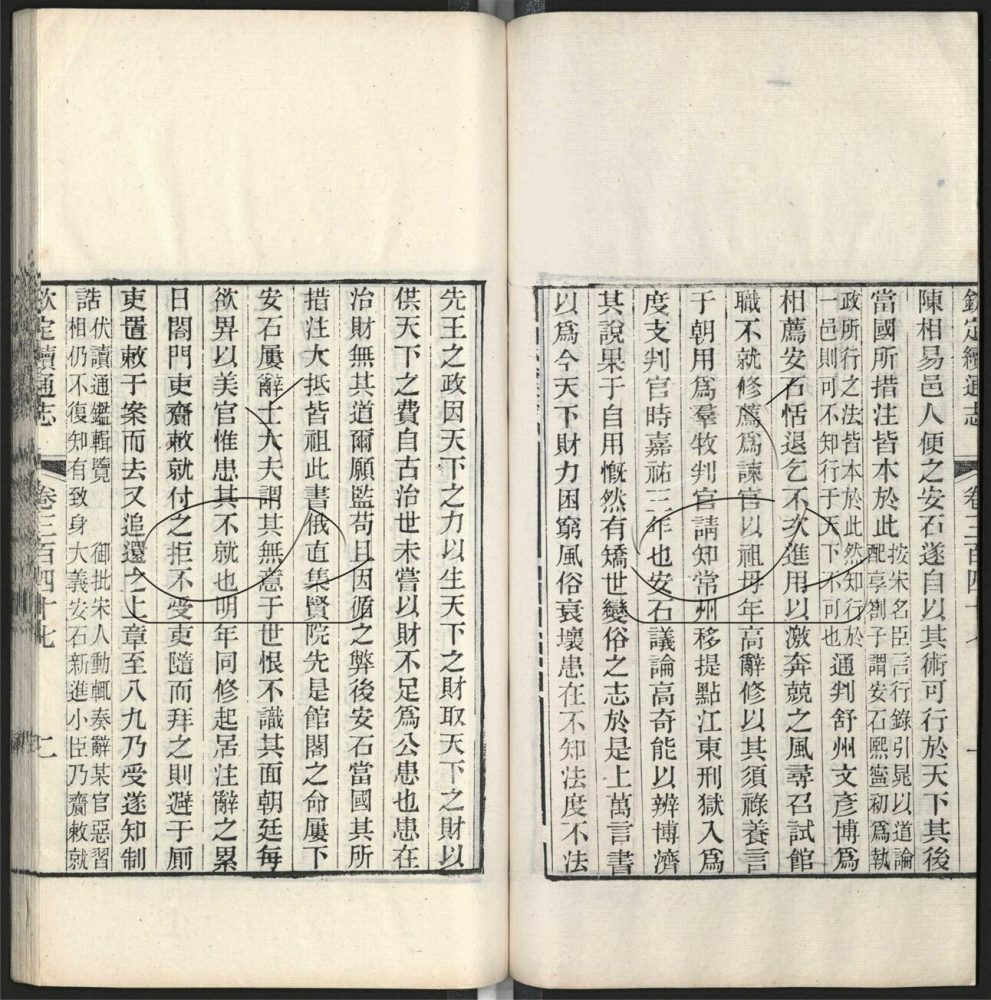 欽定續通志 卷三百四十七 一
陳相易邑人便之安石遂自以其術可行於天下其後
當國所措注皆本於此按宋名臣言行錄引晁以道論
配享劄子謂安石熙寧初爲執
政所行之法皆本於此然知行於
一邑則可不知行于天下不可也通判舒州文彥博爲
相薦安石恬退乞不次進用以激奔競之風尋召試館
職不就修薦爲諫官以祖母年高辭修以其須祿養言
于朝用爲羣牧判官請知常州移提點江東刑獄入爲
度支判官時嘉祐三年也安石議論高奇能以辨博濟
其說果于自用慨然有矯世變俗之志於是上萬言書
以爲今天下財力困窮風俗衰壞患在不知法度不法
先王之政因天下之力以生天下之財取天下之財以
供天下之費自古治世未嘗以財不足爲公患也患在
治財無其道爾願監苟且因循之弊後安石當國其所
措注大抵皆祖此書俄直集賢院先是館閣之命屢下
安石屢辭士大夫謂其無意于世恨不識其面朝廷每
欲畀以美官惟患其不就也明年同修起居注辭之累
日閤門吏齎敕就付之拒不受吏隨而拜之則避于厠
吏置敕于案而去又追還之上章至八九乃受遂知制
誥伏讀通鑑輯覽 御批宋人動輒奏辭某官惡習
相仍不復知有致身大義安石新進小臣乃齎敕就
欽定續通志 卷三百四十七 二